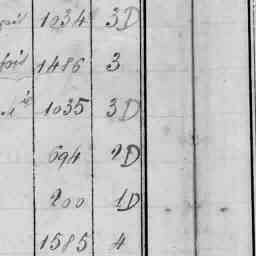 1034 3D
1486 3
1035 3D
694 2D
200 1D
1585 4